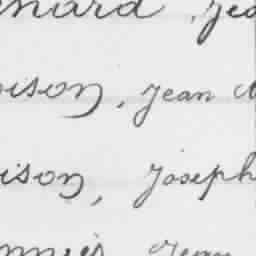 nard, Jea
ison, Jean
ison, Joseph
Jean